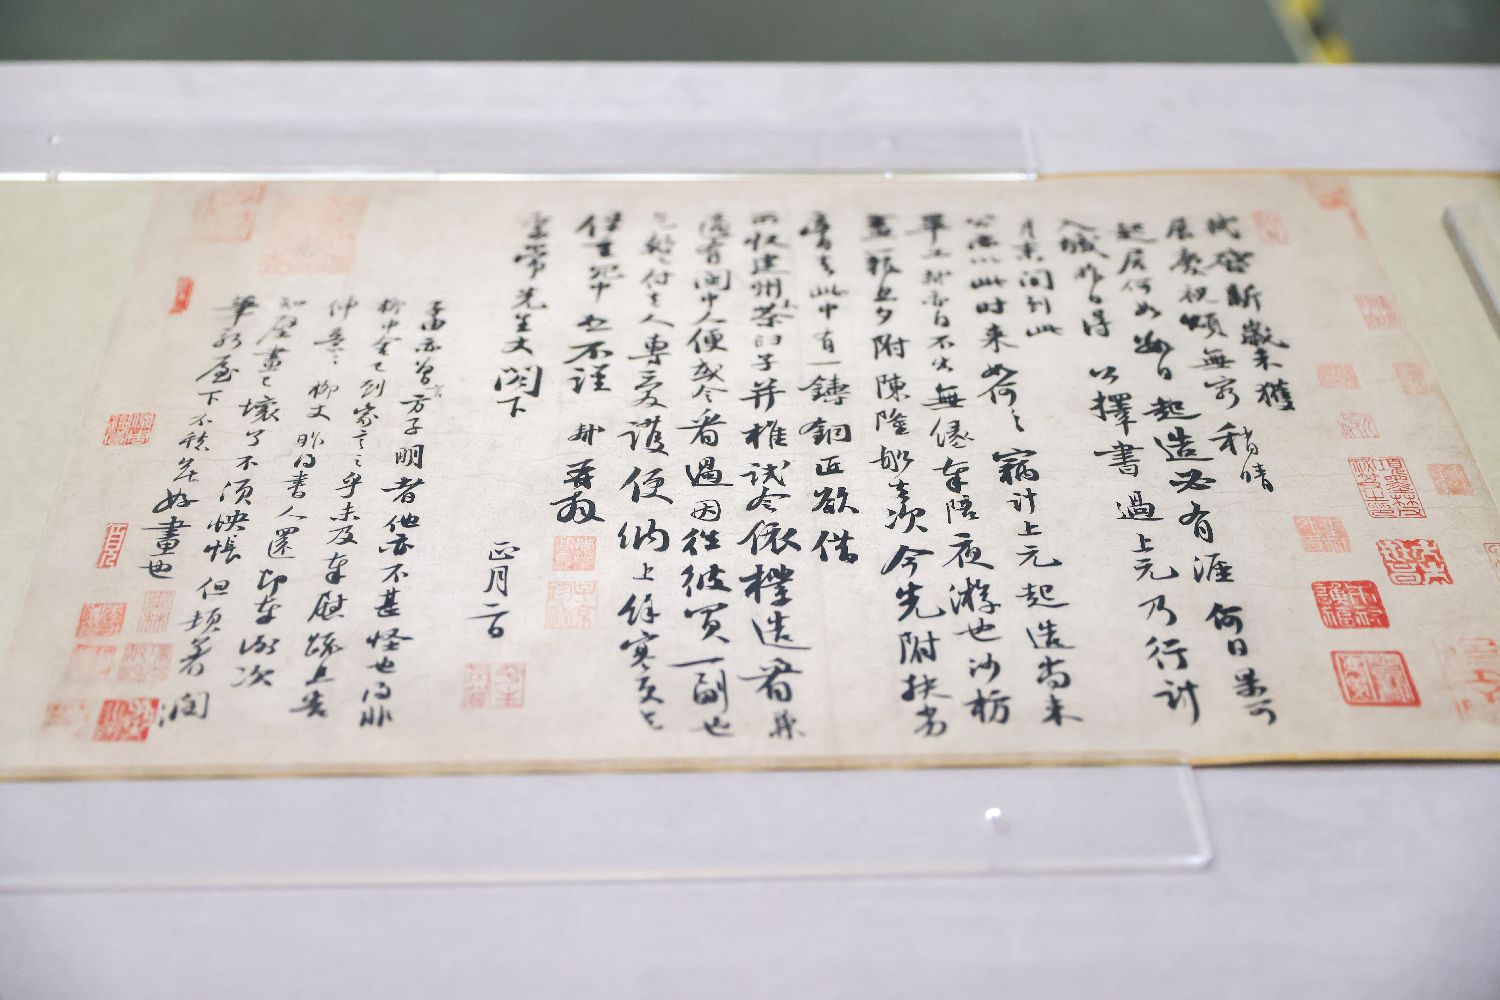 軾啓新歲未獲
展慶祝頌無窮稍晴
起居何如數日起造必有涯何日果可
入城昨日得公擇書過上元乃行計
月末間到此
公亦以此時來如何々竊計上元起造尚未
畢工軾亦自不出無緣奉陪夜游也沙枋
畫籠旦夕附陳隆船去次今先附扶劣
膏去此中有一鑄銅匠欲借
所收建州木茶臼子并椎試令依樣造看兼
適有閩中人便或令看過因往彼買一副也
乞暫付去人專愛護便納上餘寒更乞
保重冗中恕不謹 軾再拜
季常先生丈閣下
正月二日
子由亦曾言方子明者他亦不甚怪也得非
柳中舍已到家言之乎未及奉慰疏且告
伸意々柳丈昨得書人還即奉謝次
知壁畫已壞了不須怏悵但頓著潤
筆新屋下不愁無好畫也